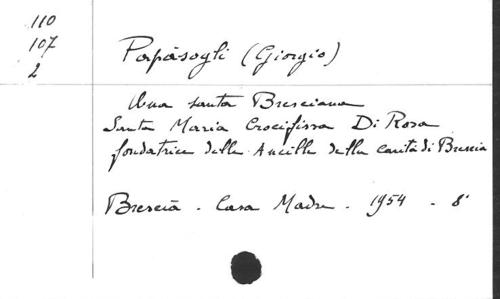 110
107
2
Papàsogli (Giorgio)
Una santa Bresciana
Santa Maria Crocifissa Di Rosa
fondatrice delle Ancille della carità di Brescia
Brescia - Casa Madre - 1954 - 8°